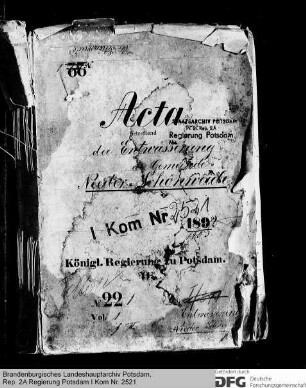 66
Acta
STAATSARCHIV POTSDAM
Pr. Br. Rep. 2A
Regierung Potsdam
betreffend
die Entwässerung
der Gemeinde
Nieder Schönweide
I Kom Nr 2521
189
Königl. Regierung zu Potsdam.
III
№ 22
Vol. 1
Brandenburgisches Landeshauptarchiv Potsdam,
Rep. 2A Regierung Potsdam I Kom Nr. 2521
Gefördert durch
DFG
Deutsche
Forschungsgemeinschaft